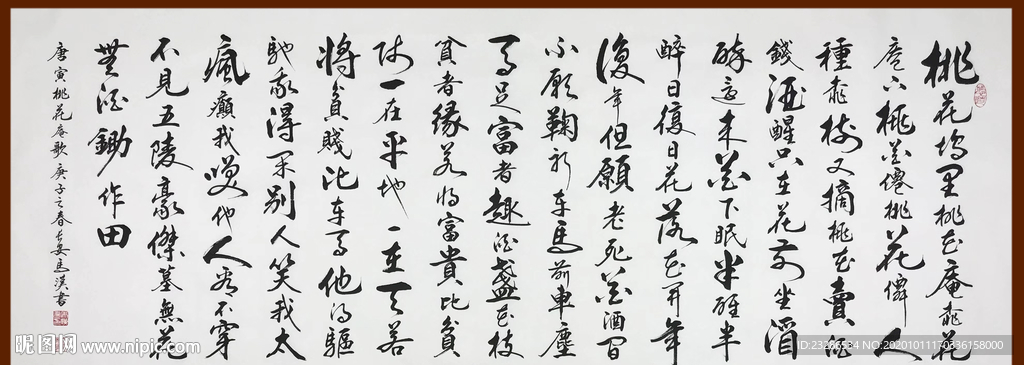 桃花塢里桃花庵桃花
庵下桃花僊桃花僊人
種桃樹又摘桃花賣酒
錢酒醒只在花前坐酒
醉還来花下眠半醒半
醉日復日花落花開年
復年但願老死花酒間
不願鞠躬車馬前車塵
馬足富者趣酒盞花枝
貧者緣若將富貴比貧
一在平地一在天若
將貧賤比車馬他得驅
馳我得閑別人笑我太
瘋癲我笑他人看不穿
不見五陵豪傑墓無花
無酒鋤作田
唐寅桃花庵歌 庚子之春長安馬漢書
昵图网 www.nipic.com
ID:23286534 NO:20201011170336158000